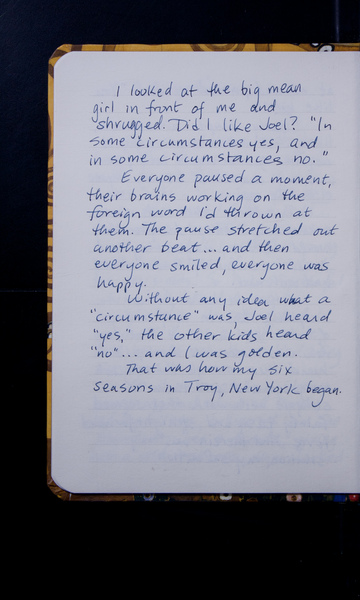 I looked at the big mean
girl in front of me and
shrugged. Did I like Joel? "In
some circumstances yes, and
in some circumstances no."
Everyone paused a moment,
their brains working on the
foreign word I'd thrown at
them. The pause stretched out
another beat... and then
everyone smiled, everyone was
happy.
Without any idea what a
"circumstance" was, Joel heard
"yes," the other kids heard
"no"... and I was golden.
That was how my six
seasons in Troy, New York began.